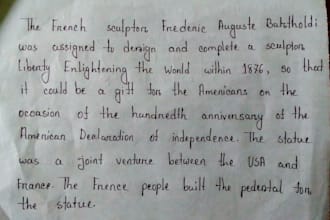 The French sculpton Fredenic Auguste Bahtholdi
was assigned to design and complete a sculpton
Liberty Enlightening the World within 1876, so that
it could be a gift fon the Amenicans on the
occasion of the hundnedth annivensany of the
Amenican Dealanation of independence. The statue
was a joint ventune between the USA and
Fnance. The Fnence people built the pedestal fon
the statue.